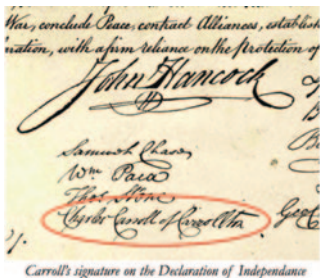 War, conclude Peace, contract Alliances, establish
ration, with a firm reliance on the protection of
John Hancock
Samuel Chase
Wm. Paca
Thos. Stone
Charles Carroll of Carrollton
Geo
Carroll's signature on the Declaration of Independence